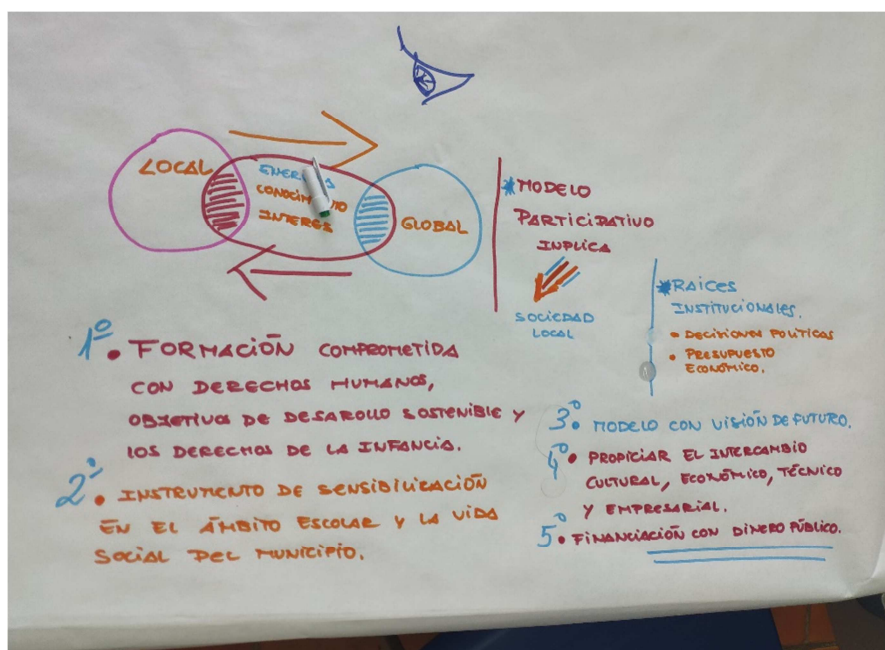 LOCAL
CONOCIMIENTO
INTERES
GLOBAL
* MODELO
PARTICIPATIVO
INPLICA
SOCIEDAD
LOCAL
* RAICES
INSTITUCIONALES.
• DECISIONES POLÍTICAS
• PRESUPUESTO
ECONÓMICO.
1º • FORMACIÓN COMPROMETIDA
CON DERECHOS HUMANOS,
OBJETIVOS DE DESAROLLO SOSTENIBLE Y
LOS DERECHOS DE LA INFANCIA.
2º • INSTRUMENTO DE SENSIBILIZACIÓN
EN EL ÁMBITO ESCOLAR Y LA VIDA
SOCIAL DEL MUNICIPIO.
3º • MODELO CON VISIÓN DE FUTURO.
4º • PROPICIAR EL INTERCAMBIO
CULTURAL, ECONÓMICO, TÉCNICO
Y EMPRESARIAL.
5º • FINANCIACIÓN CON DINERO PÚBLICO.